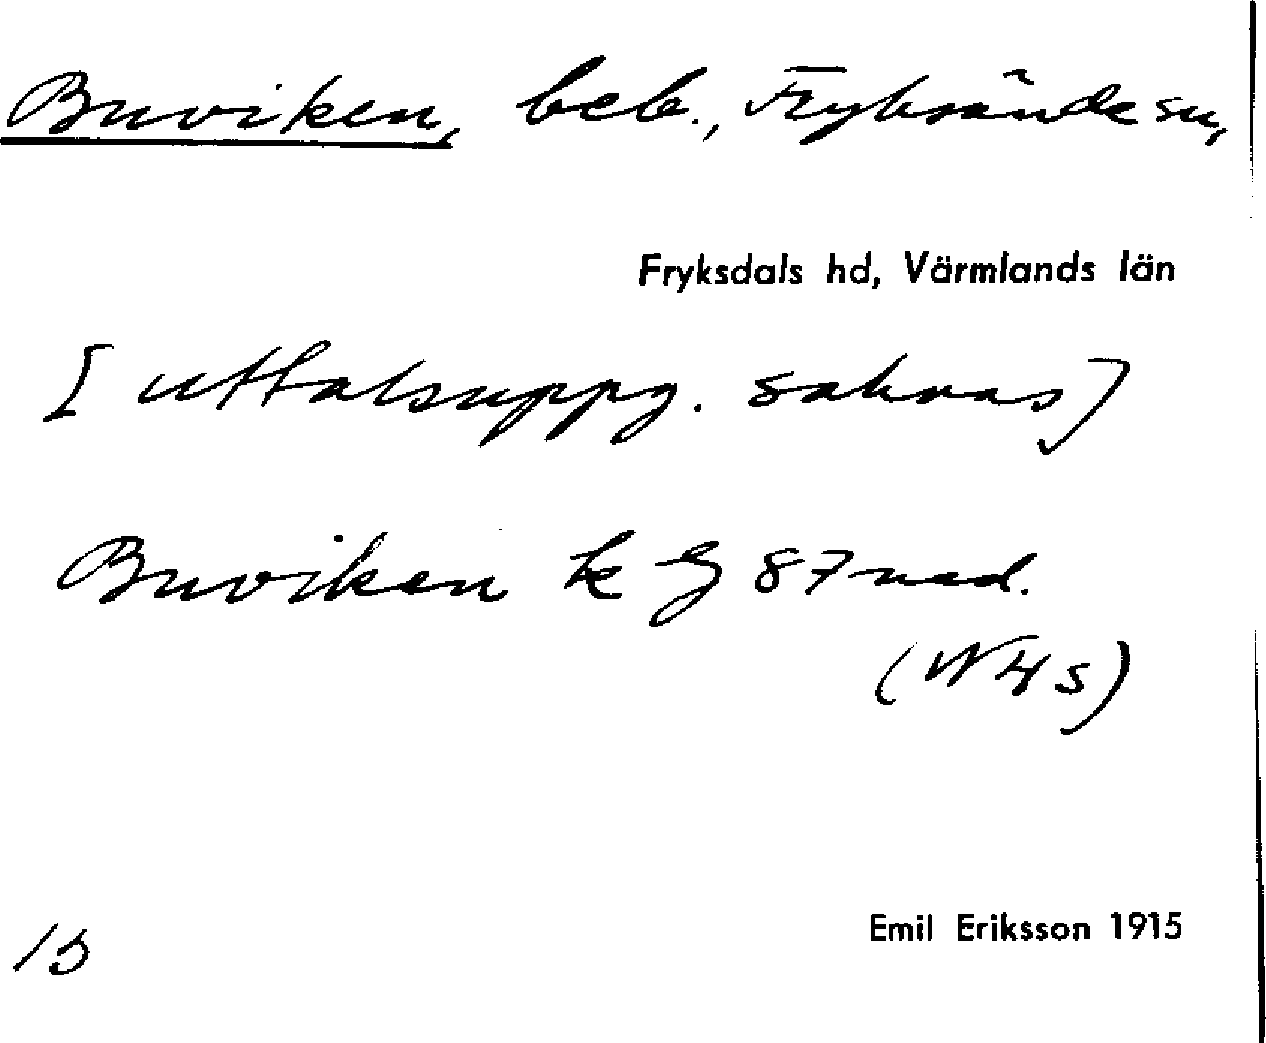 Buviken, beb., Fryksände sn,
Fryksdals hd, Värmlands län
[uttalsuppg. saknas]
Buviken k G 87 ned.
(W4s)
Emil Eriksson 1915